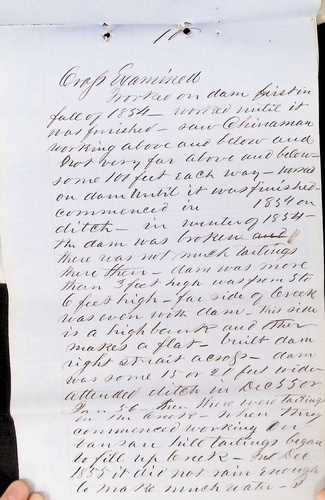 11
Cross Examined
Worked on dam first in
fall of 1854 - worked until it
was finished - saw Chinaman
working above and below and
not very far above and below
some 100 feet each way - worked
on dam until it was finished -
commenced in 1854 on
ditch - in winter of 1854 -
the dam was broken and
there was not much tailings
there then - dam was more
than 3 feet high was from 5 to
6 feet high - far side of Creek
was even with dam - this side
is a high bank and other
makes a flat - built dam
right strait across - dam
was some 15 or 20 feet wide -
attended ditch in Dec 55 or
Jan 56 - then there were tailings
in the Creek - when they
commenced working on
hill tailings began
to fill up Creek - Dec
1855 it did not rain enough
to make much water -